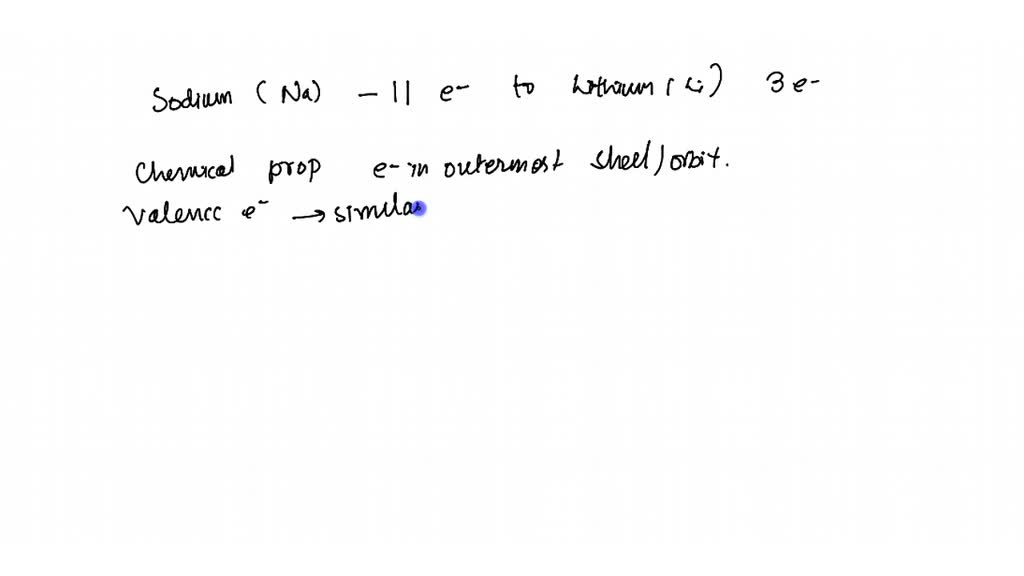 Sodium (Na) - 11 e- to Lithium (Li) 3 e-
Chemical prop e- in outermost shell/orbit.
Valence e- → similar